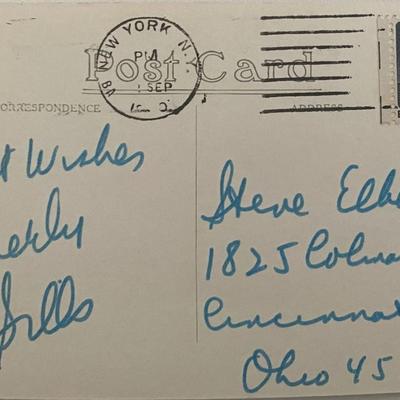 NEW YORK, N.Y.
PM
1 SEP
Post Card
CORRESPONDENCE
ADDRESS
t Wishes
erly
Sills
Steve Elbe
1825 Colma
Cincinna
Ohio 45